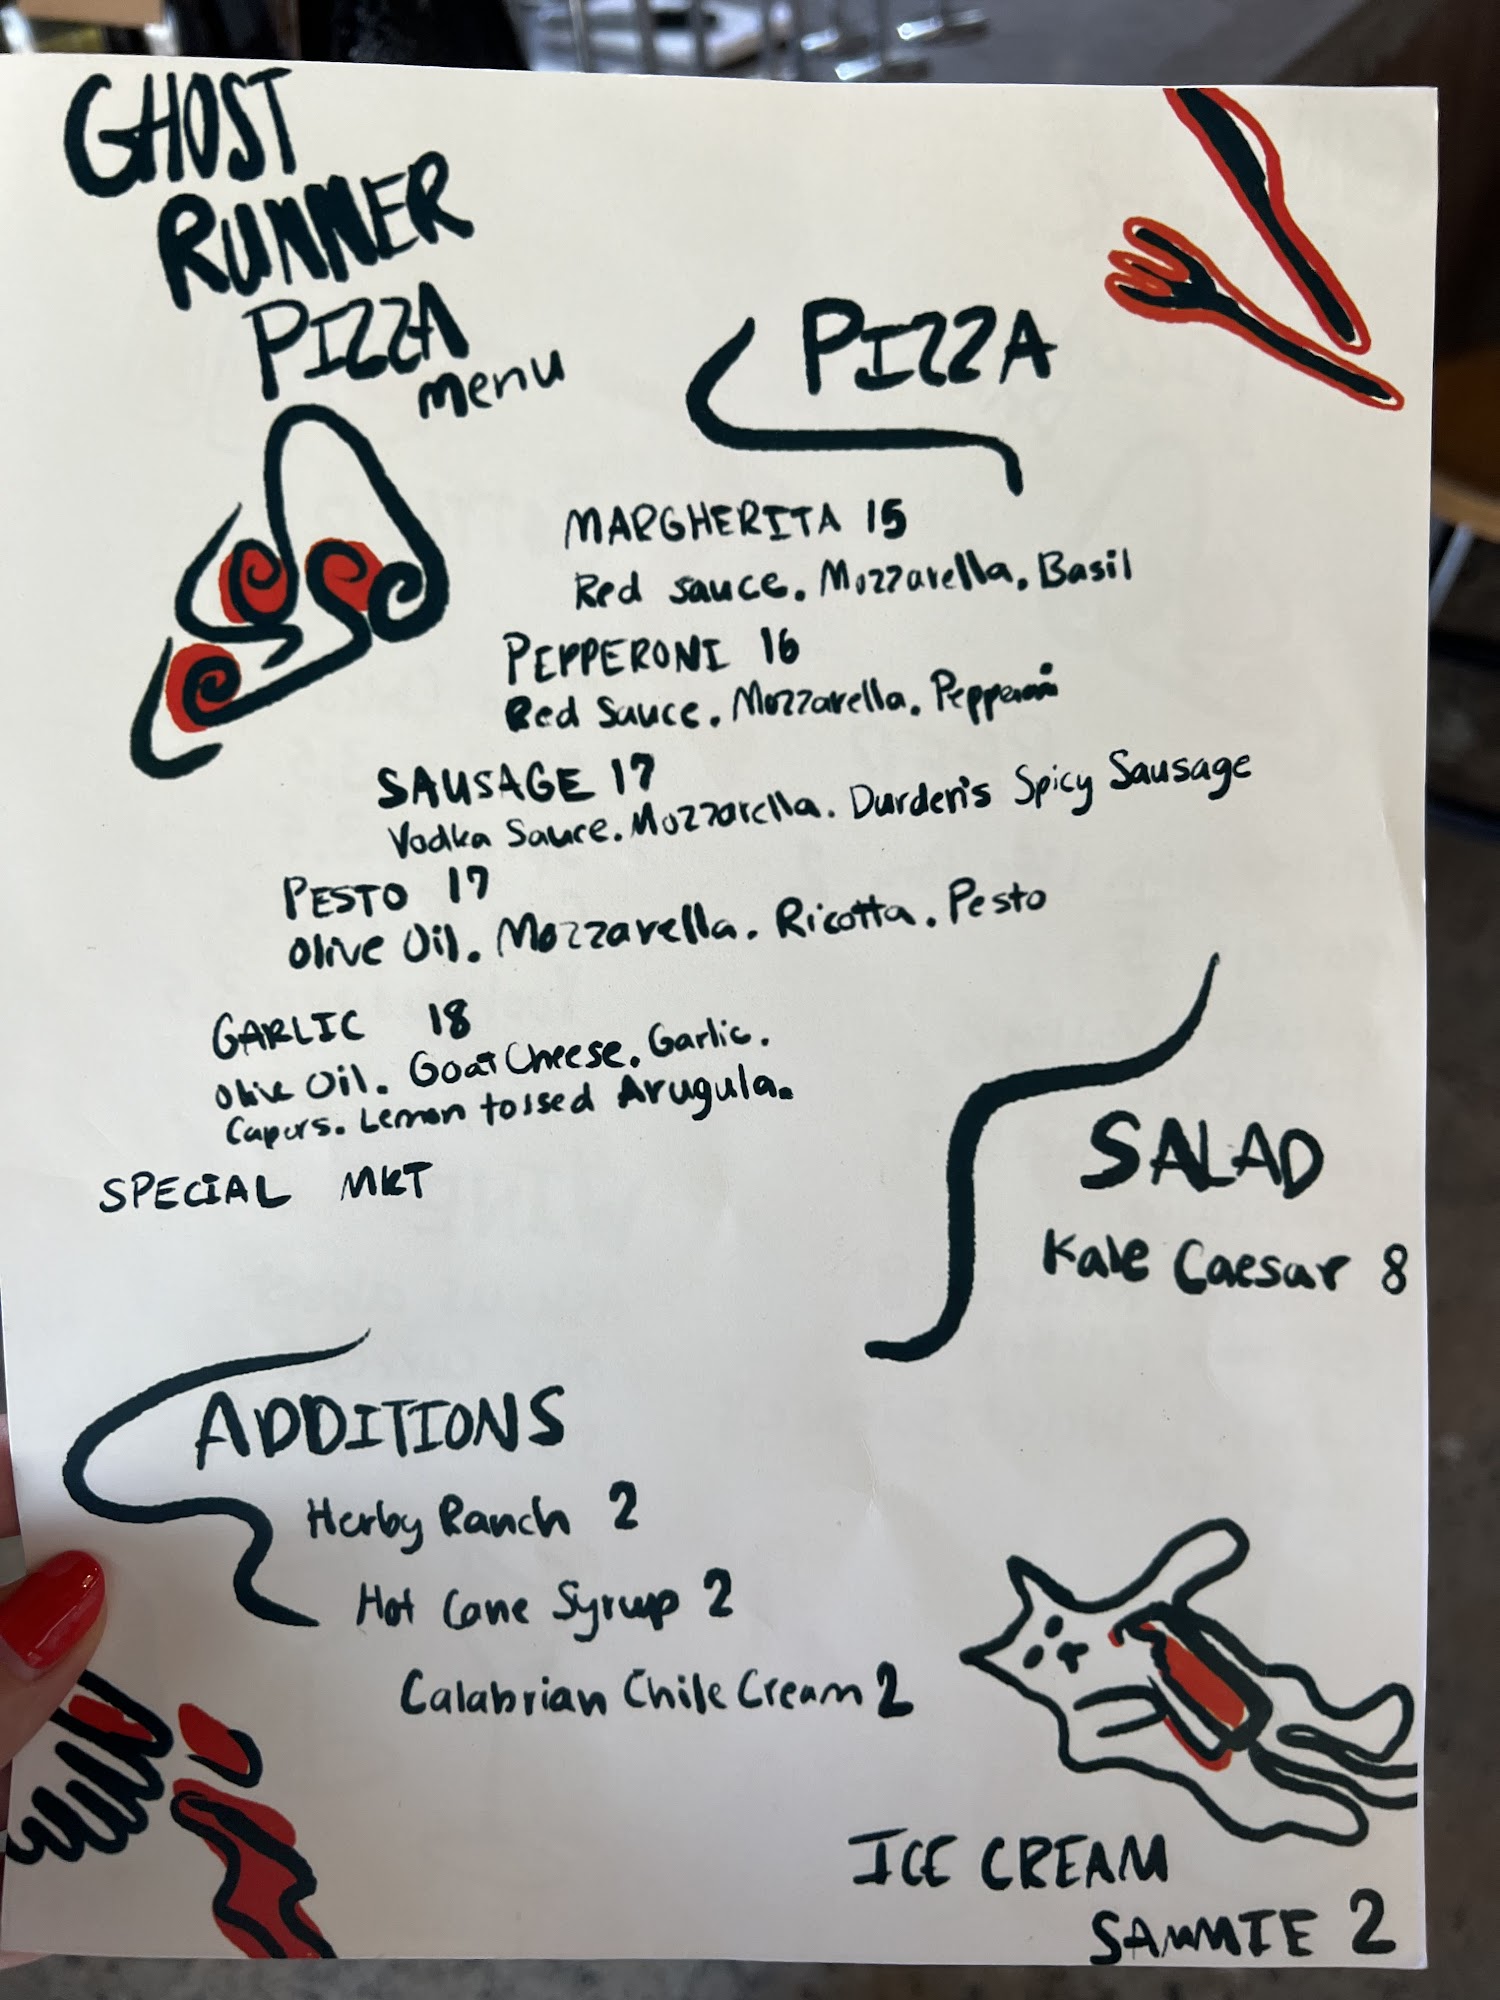 GHOST
RUNNER
PIZZA
menu
PIZZA
MARGHERITA 15
Red sauce. Mozzarella. Basil
PEPPERONI 16
Red Sauce. Mozzarella. Pepperoni
SAUSAGE 17
Vodka Sauce. Mozzarella. Durden's Spicy Sausage
PESTO 17
Olive Oil. Mozzarella. Ricotta. Pesto
GARLIC 18
Olive Oil. Goat Cheese. Garlic.
Capers. Lemon tossed Arugula.
SPECIAL MKT
SALAD
Kale Caesar 8
ADDITIONS
Herby Ranch 2
Hot Cane Syrup 2
Calabrian Chile Cream 2
ICE CREAM
SAMMIE 2